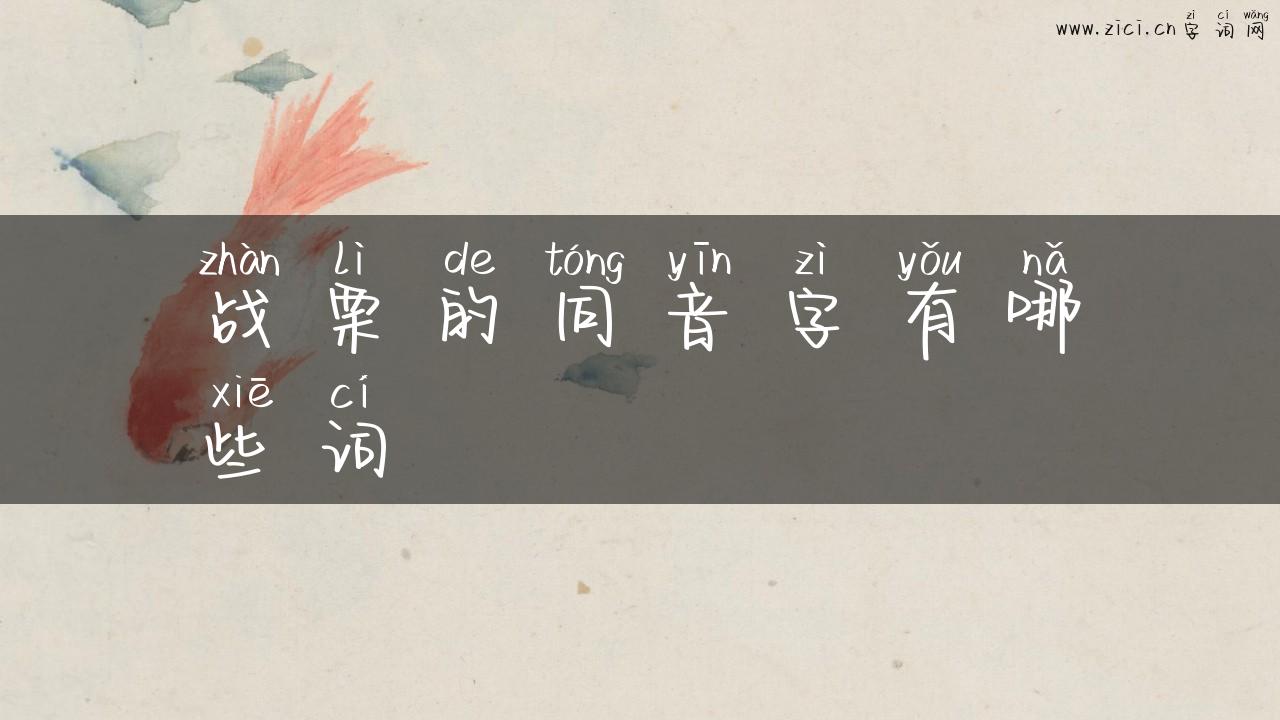 zì cí wǎng
www.zici.cn字词网
zhàn lì de tóng yīn zì yǒu nǎ
战栗的同音字有哪
xiē cí
些词